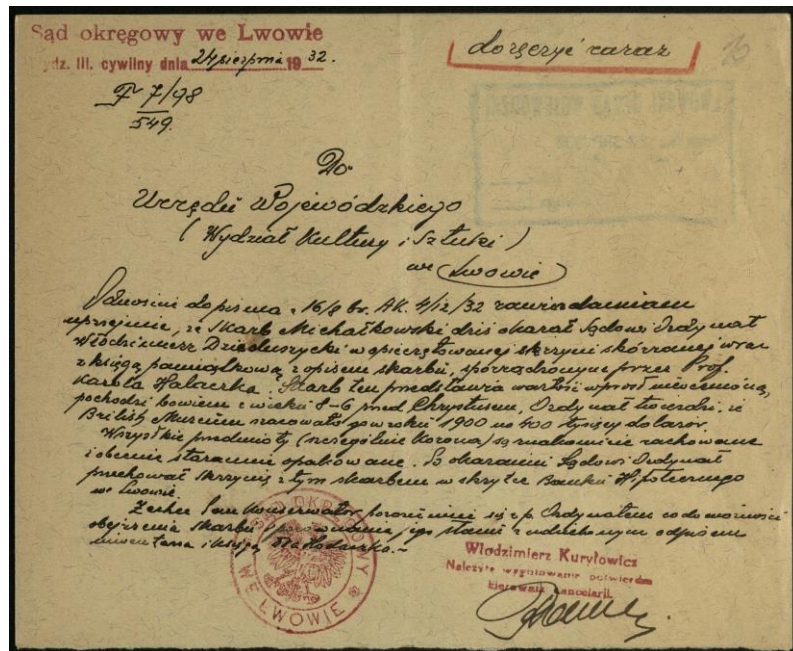 Sąd okręgowy we Lwowie
dz. III. cywilny dnia 24 sierpnia 1932.
doręczyć zaraz
F 7/98
549.
Do
Urzędu Wojewódzkiego
(Wydział Kultury i Sztuki)
we Lwowie
Odnośnie do pisma z 16/8 br. AK. 4/12/32 zawiadamiam
uprzejmie, że Skarb Michałkowski dziś okazał Sądowi Ordynat
Włodzimierz Dzieduszycki w opieczętowanej skrzyni skórzanej wraz
z księgą pamiątkową z opisem skarbu, sporządzonym przez Prof.
Karola Hadaczka. Skarb ten przedstawia wartość wprost nieocenioną,
pochodzi bowiem z wieku 8-6 przed Chrystusem, Ordynat twierdzi, iż
British Muzeum szacowało go w roku 1900 na 400 tysięcy dolarów.
Wszystkie przedmioty (szczególnie Korona) są znakomicie zachowane
i obecnie starannie opakowane. Po okazaniu Sądowi Ordynat
przechował skrzynię z tym skarbem w skrytce Banku Hipotecznego
we Lwowie.
Zechce Pan Konserwator porozumieć się z p. Ordynatem co do możności
obejrzenia skarbu i porównania jego stanu z udzielonym odpisem
inwentarza i księgą
SĄD OKRĘGOWY
WE LWOWIE
Włodzimierz Kuryłowicz
Należyte wygotowanie potwierdza
kierownik kancelarii